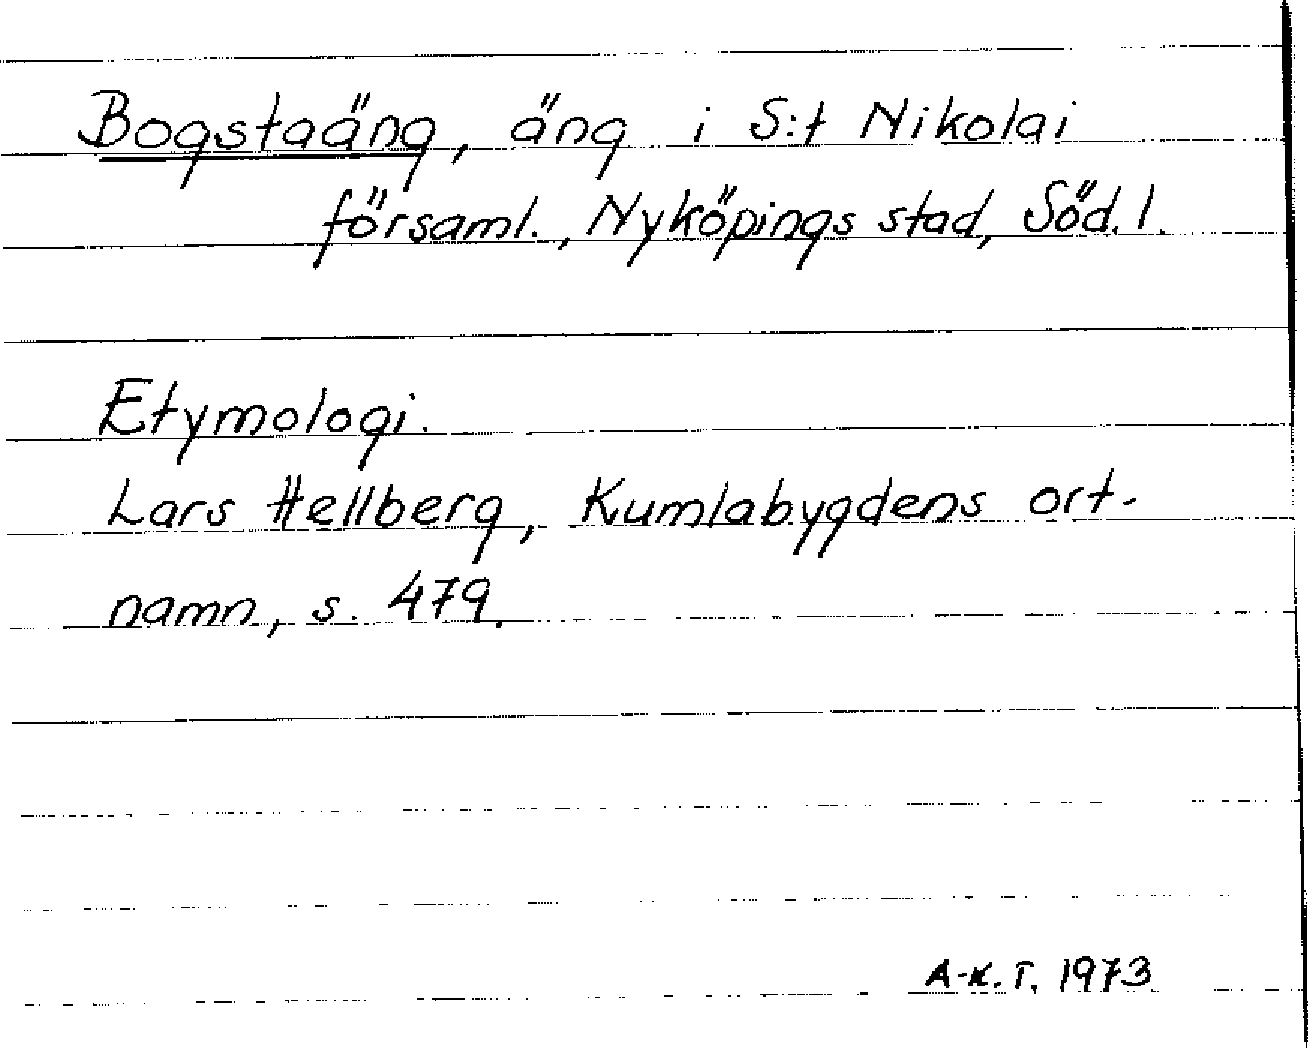 Bogstaäng, äng i S:t Nikolai
församl., Nyköpings stad, Söd. l.
Etymologi.
Lars Hellberg, Kumlabygdens ort-
namn, s. 479.
A-K. T. 1973